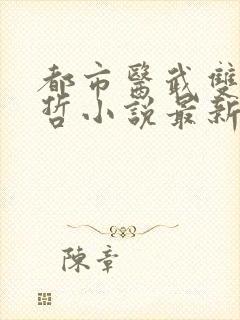 都市醫武雙
哲小說最新
陳章